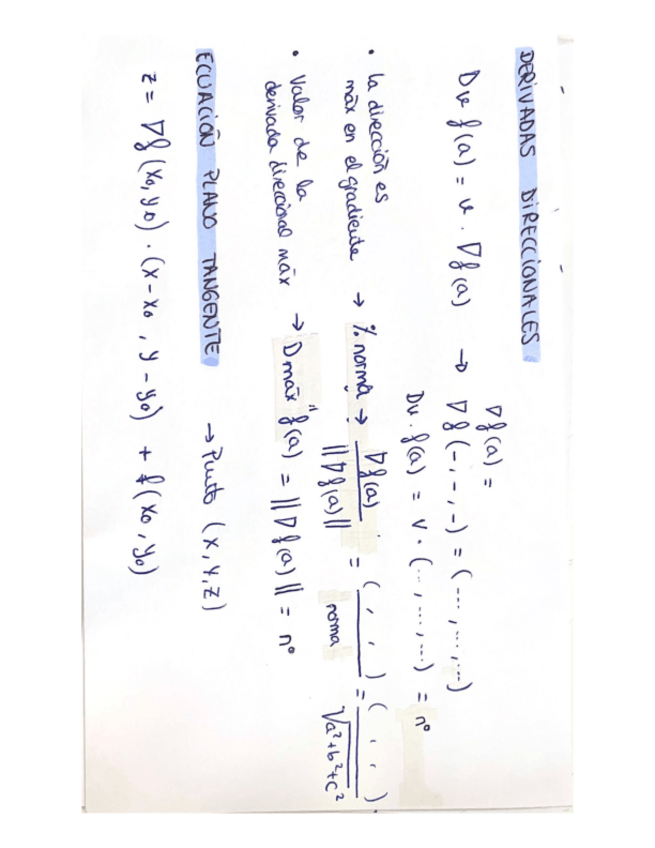 DERIVADAS DIRECCIONALES
∇f(a) =
Dv f(a) = v · ∇f(a) → ∇f(-,-,-) = (..., ..., ...)
Dv. f(a) = v · (..., ..., ...) = nº
• la dirección es máx en el gradiente → % norma → ∇f(a) / ||∇f(a)|| = ( , , ) / norma = ( , , ) / √a²+b²+c²
• Valor de la derivada direccional máx → D máx f(a) = ||∇f(a)|| = nº
ECUACIÓN PLANO TANGENTE → Punto (x, y, z)
z = ∇f(x₀, y₀) · (x - x₀, y - y₀) + f(x₀, y₀)